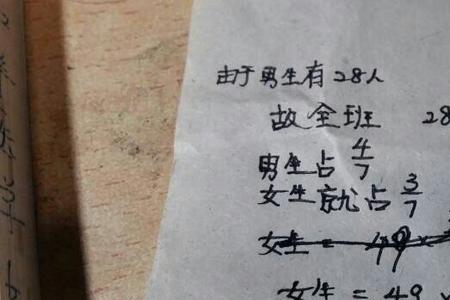 由于男生有28人
故全班 28
男生占4/7
女生就占3/7
女生 = 49
女生 = 49